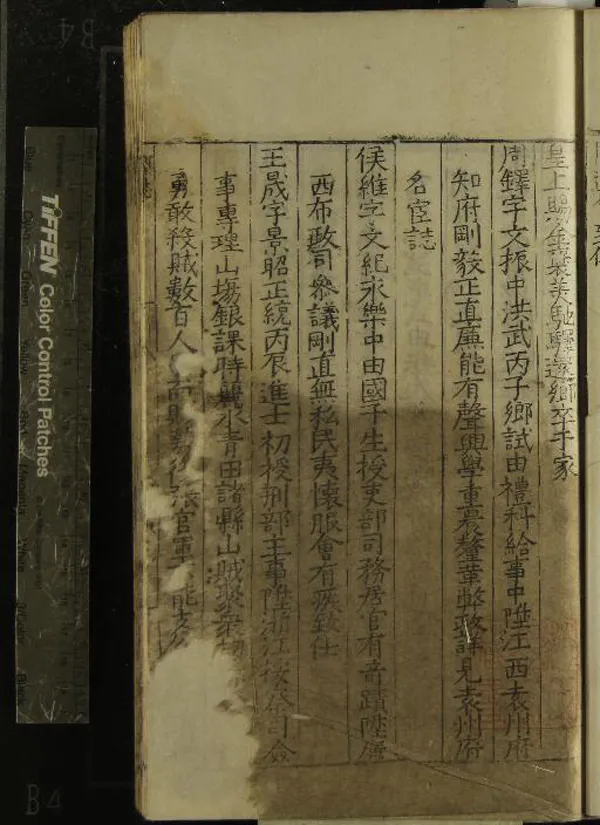 皇上賜金襲美馳驛還鄉卒于家
周鐸字文振中洪武丙子鄉試由禮科給事中陞江西袁州府
知府剛毅正直廉能有聲興學重農釐革弊政詳見袁州府
名宦誌
侯維字文紀永樂中由國子生授吏部司務居官有奇蹟陞廣
西布政司參議剛直無私民夷懷服會有疾致仕
王晟字景昭正統丙辰進士初授刑部主事陞浙江按察司僉
事專理山場銀課時麗水青田諸縣山賊聚衆
勇敢殺賊數百人 官軍 能支
TIFFEN Color Control Patches
B4